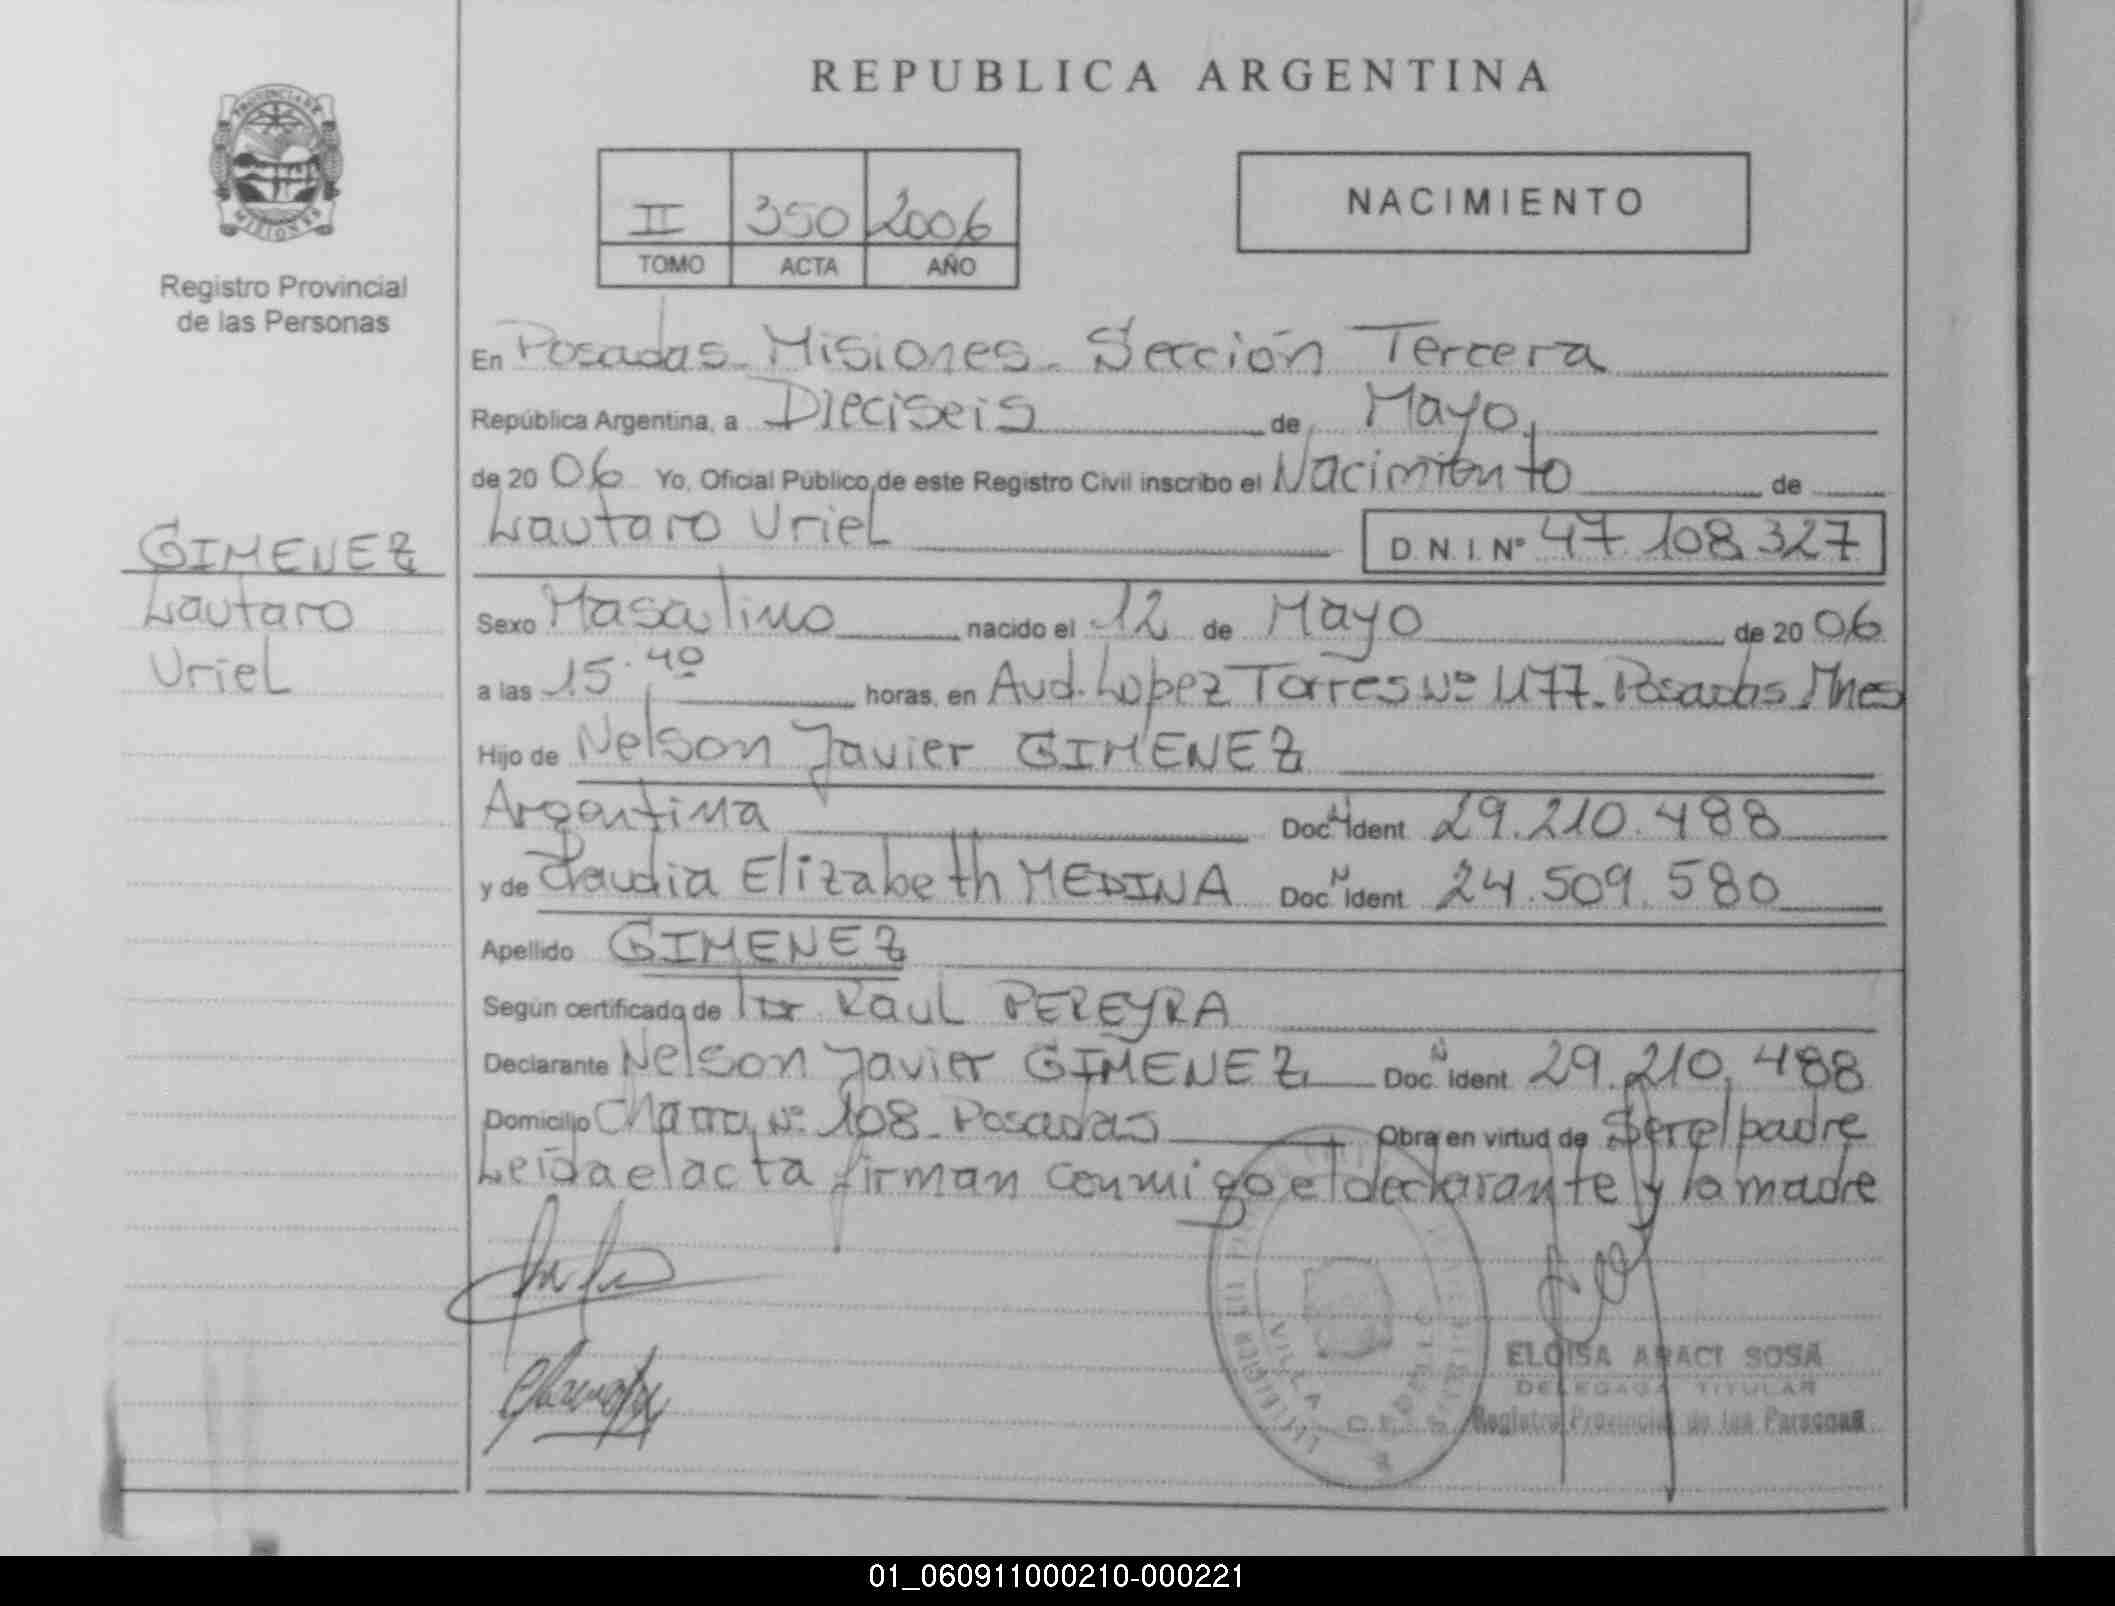 REPUBLICA ARGENTINA
PROVINCIA DE
MISIONES
Registro Provincial
de las Personas
II 350 2006
TOMO ACTA AÑO
NACIMIENTO
En Posadas - Misiones - Sección Tercera
República Argentina, a Dieciseis de Mayo
de 20 06 Yo, Oficial Público de este Registro Civil inscribo el Nacimiento de
Lautaro Uriel D.N.I. Nº 47.108.327
GIMENEZ
Lautaro
Uriel
Sexo Masculino nacido el 12 de Mayo de 20 06
a las 15.40 horas, en Avd. Lopez Torres Nº 1177 - Posadas Mnes
Hijo de Nelson Javier GIMENEZ
Argentina Doc. N Ident 29.210.488
y de Claudia Elizabeth MEDINA Doc. N Ident 24.509.580
Apellido GIMENEZ
Según certificado de Raul PEREYRA
Declarante Nelson Javier GIMENEZ Doc. N Ident 29.210.488
Domicilio Chacra Nº 108 - Posadas Obra en virtud de Ser el padre
Leida el acta firman conmigo el declarante y la madre
VILLA CABELLO
ELOISA ARACI SOSA
DELEGADA TITULAR
Registro Provincial de las Personas
01_060911000210-000221